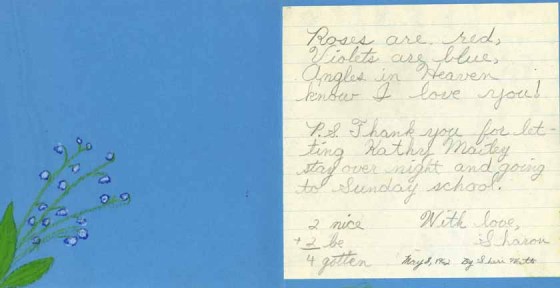 Roses are red,
Violets are blue,
Angles in Heaven
know I love you!
P.S. Thank you for let-
ting Kathy Maitey
stay over night and going
to Sunday school.
2 nice With love,
+2 be Sharon
4 gotten By